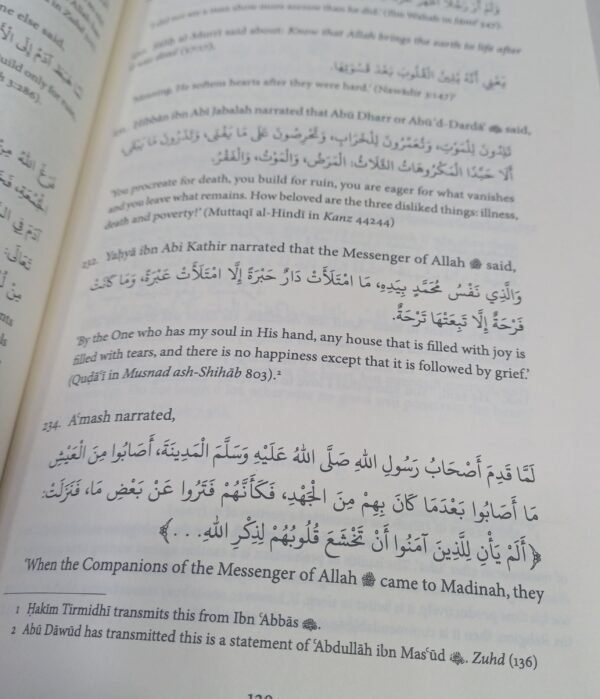 'I did not see a man show more
said about: Know that Allah brings the earth to life after
(57:17).
يَعْنِي أَنَّهُ يُلِينُ الْقُلُوبَ بَعْدَ قَسْوَتِهَا.
Meaning, He softens hearts after they were hard.' (Nawādir 3:147)¹
Ḥibbān ibn Abī Jabalah narrated that Abū Dharr or Abū'd-Dardā' ﷺ said,
تَلِدُونَ لِلْمَوْتِ، وَتُعَمِّرُونَ لِلْخَرَابِ، وَتَحْرِصُونَ عَلَى مَا يَفْنَى، وَتَذَرُونَ مَا يَبْقَى،
أَلَا حَبَّذَا الْمَكْرُوهَاتُ الثَّلَاثُ: الْمَرَضُ، وَالْمَوْتُ، وَالْفَقْرُ.
'You procreate for death, you build for ruin, you are eager for what vanishes
and you leave what remains. How beloved are the three disliked things: illness,
death and poverty!' (Muttaqī al-Hindī in Kanz 44244)
232. Yaḥyā ibn Abī Kathīr narrated that the Messenger of Allah ﷺ said,
وَالَّذِي نَفْسُ مُحَمَّدٍ بِيَدِهِ، مَا امْتَلَأَتْ دَارٌ حَبْرَةً إِلَّا امْتَلَأَتْ عَبْرَةً، وَمَا كَانَتْ
فَرْحَةٌ إِلَّا تَبِعَتْهَا تَرْحَةٌ.
'By the One who has my soul in His hand, any house that is filled with joy is
filled with tears, and there is no happiness except that it is followed by grief.'
(Quḍā'ī in Musnad ash-Shihāb 803).²
234. A'mash narrated,
لَمَّا قَدِمَ أَصْحَابُ رَسُولِ اللهِ صَلَّى اللهُ عَلَيْهِ وَسَلَّمَ الْمَدِينَةَ، أَصَابُوا مِنَ الْعَيْشِ
مَا أَصَابُوا بَعْدَمَا كَانَ بِهِمْ مِنَ الْجَهْدِ، فَكَأَنَّهُمْ فَتَرُوا عَنْ بَعْضِ مَا، فَنَزَلَتْ:
﴿أَلَمْ يَأْنِ لِلَّذِينَ آمَنُوا أَنْ تَخْشَعَ قُلُوبُهُمْ لِذِكْرِ اللهِ...﴾
'When the Companions of the Messenger of Allah ﷺ came to Madinah, they
1 Ḥakīm Tirmidhī transmits this from Ibn 'Abbās
2 Abū Dāwūd has transmitted this is a statement of 'Abdullāh ibn Mas'ūd. Zuhd (136)